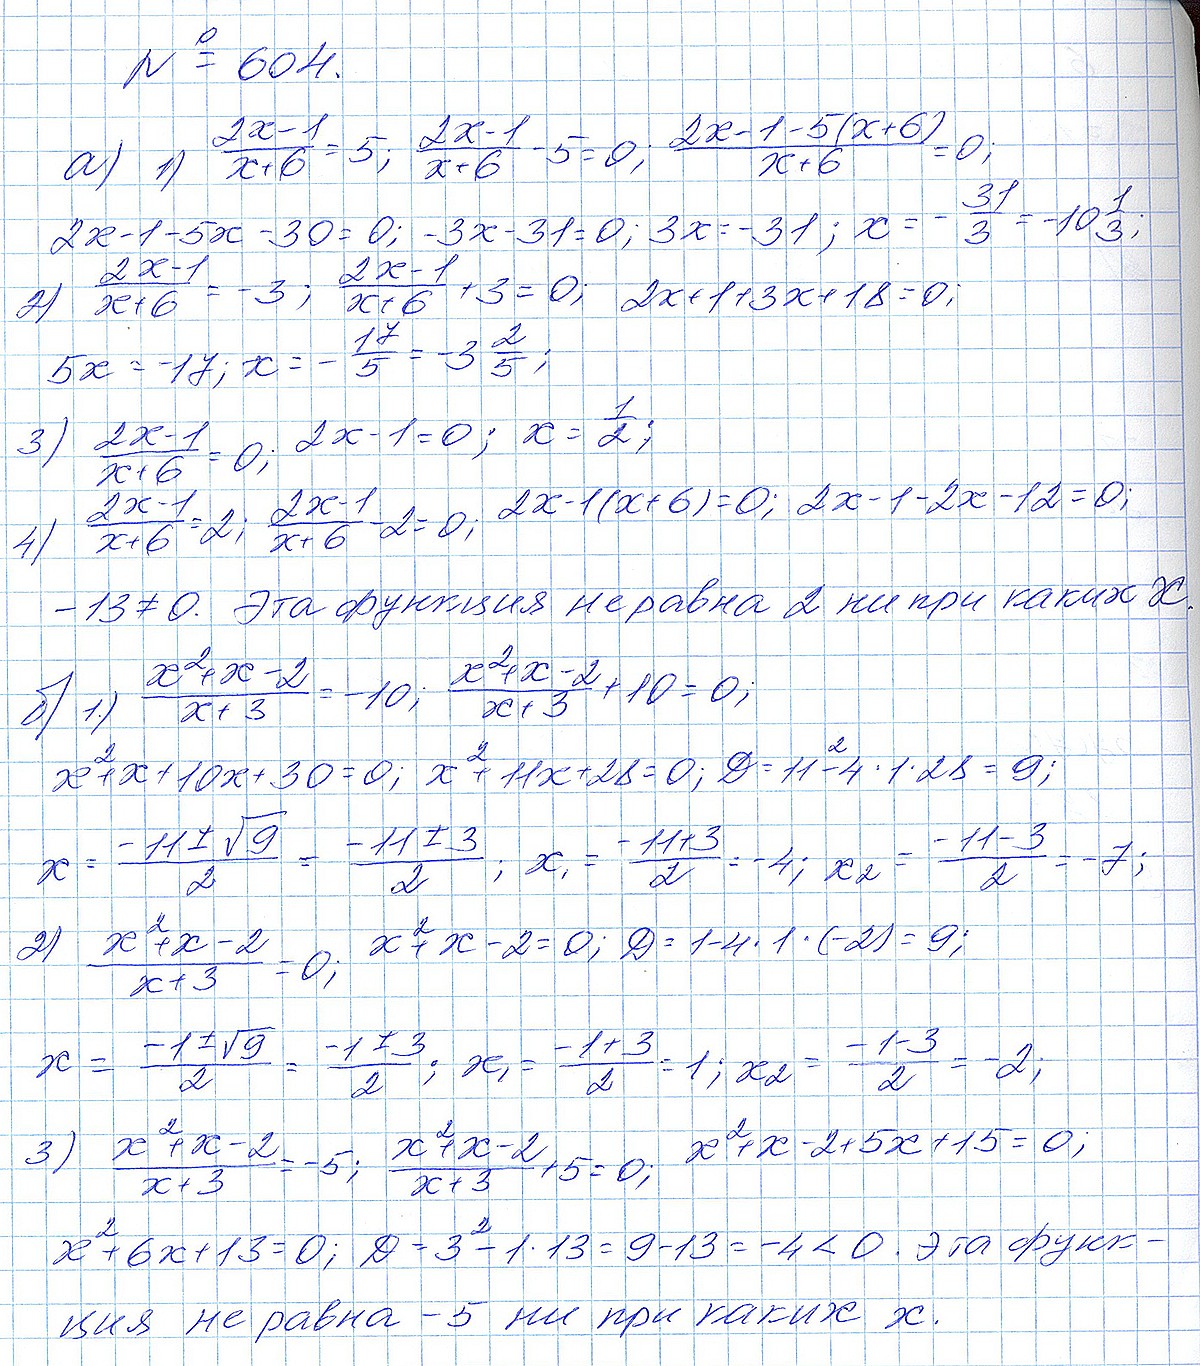 № 604.
а) 1) (2x-1)/(x+6) = 5; (2x-1)/(x+6) - 5 = 0; (2x-1-5(x+6))/(x+6) = 0;
2x-1-5x-30=0; -3x-31=0; 3x=-31; x = -31/3 = -10 1/3;
2) (2x-1)/(x+6) = -3; (2x-1)/(x+6) + 3 = 0; 2x+1+3x+18=0;
5x = -17; x = -17/5 = -3 2/5;
3) (2x-1)/(x+6) = 0; 2x-1=0; x = 1/2;
4) (2x-1)/(x+6) = 2; (2x-1)/(x+6) - 2 = 0; 2x-1(x+6)=0; 2x-1-2x-12=0;
-13≠0. Эта функция не равна 2 ни при каких x.
б) 1.) (x²+x-2)/(x+3) = -10; (x²+x-2)/(x+3) + 10 = 0;
x²+x+10x+30=0; x²+11x+28=0; D=11²-4·1·28=9;
x = (-11±√9)/2 = (-11±3)/2; x₁ = (-11+3)/2 = -4; x₂ = (-11-3)/2 = -7;
2) (x²+x-2)/(x+3) = 0; x²+x-2=0; D=1-4·1·(-2)=9;
x = (-1±√9)/2 = (-1±3)/2; x₁ = (-1+3)/2 = 1; x₂ = (-1-3)/2 = -2;
3) (x²+x-2)/(x+3) = -5; (x²+x-2)/(x+3) + 5 = 0; x²+x-2+5x+15=0;
x²+6x+13=0; D=3²-1·13=9-13=-4<0. Эта функ-
ция не равна -5 ни при каких x.